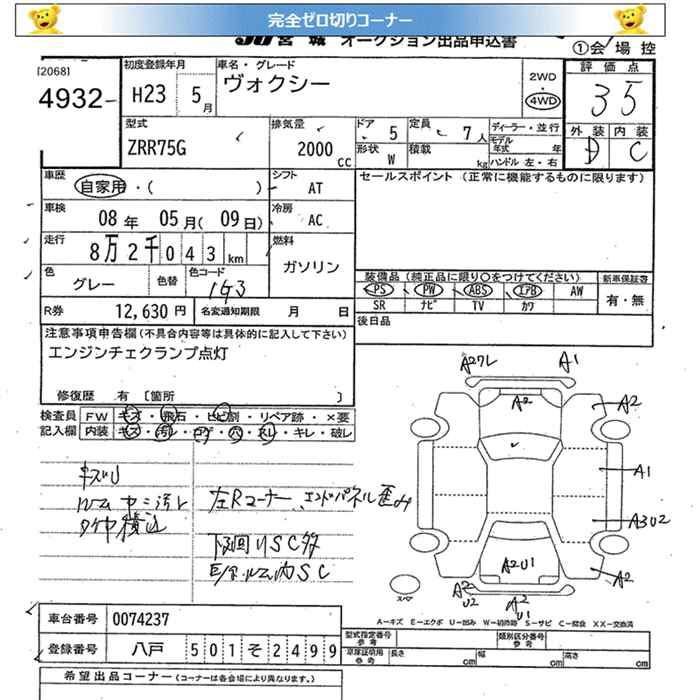 完全ゼロ切りコーナー
JU 宮城 オークション出品申込書
①会場控
[2068]
4932-
初度登録年月
H23 5月
車名・グレード
ヴォクシー
2WD
・
4WD
評価点
3 5
型式
ZRR75G
排気量
2000 cc
ドア 5
定員 7人
形状 W
積載 kg
ディーラー・並行
モデル年式 年
ハンドル 左・右
外装 内装
D C
車歴
自家用・( )
シフト
AT
セールスポイント (正常に機能するものに限ります)
車検
08年 05月(09日)
冷房
AC
走行
8万2千043km
燃料
ガソリン
色
グレー
色替
色コード
1G3
装備品 (純正品に限り○をつけてください)
PS PW ABS エアB AW
SR ナビ TV カワ
新車保証書
有・無
R券 12,630円
名変通知期限 月 日
後日品
注意事項申告欄(不具合内容等は具体的に記入して下さい)
エンジンチェクランプ点灯
修復歴 有 〔箇所 〕
検査員記入欄
FW キズ・飛石・ヒビ割・リペア跡・×要
内装 キズ・汚レ・コゲ・穴・スレ・キレ・破レ
キズU
ルーム中ニ汚レ
タイヤ積込
左Rコーナー、エンドパネル歪み
下回りSC多
E/G.ルーム内SC
A27レ
A1
A2
A2
A1
A3U2
A2U1
A2
U2
A2
U1
A2
スペア
A-キズ E-エクボ U-凹み W-補修跡 S-サビ C-腐食 XX-交換済
車台番号 0074237
登録番号 八戸 501 そ 2499
型式指定番号
参考
類別区分番号
参考
車庫証明用
参考
長さ cm 幅 cm 高さ cm
希望出品コーナー (コーナーは各会場により異なります。)